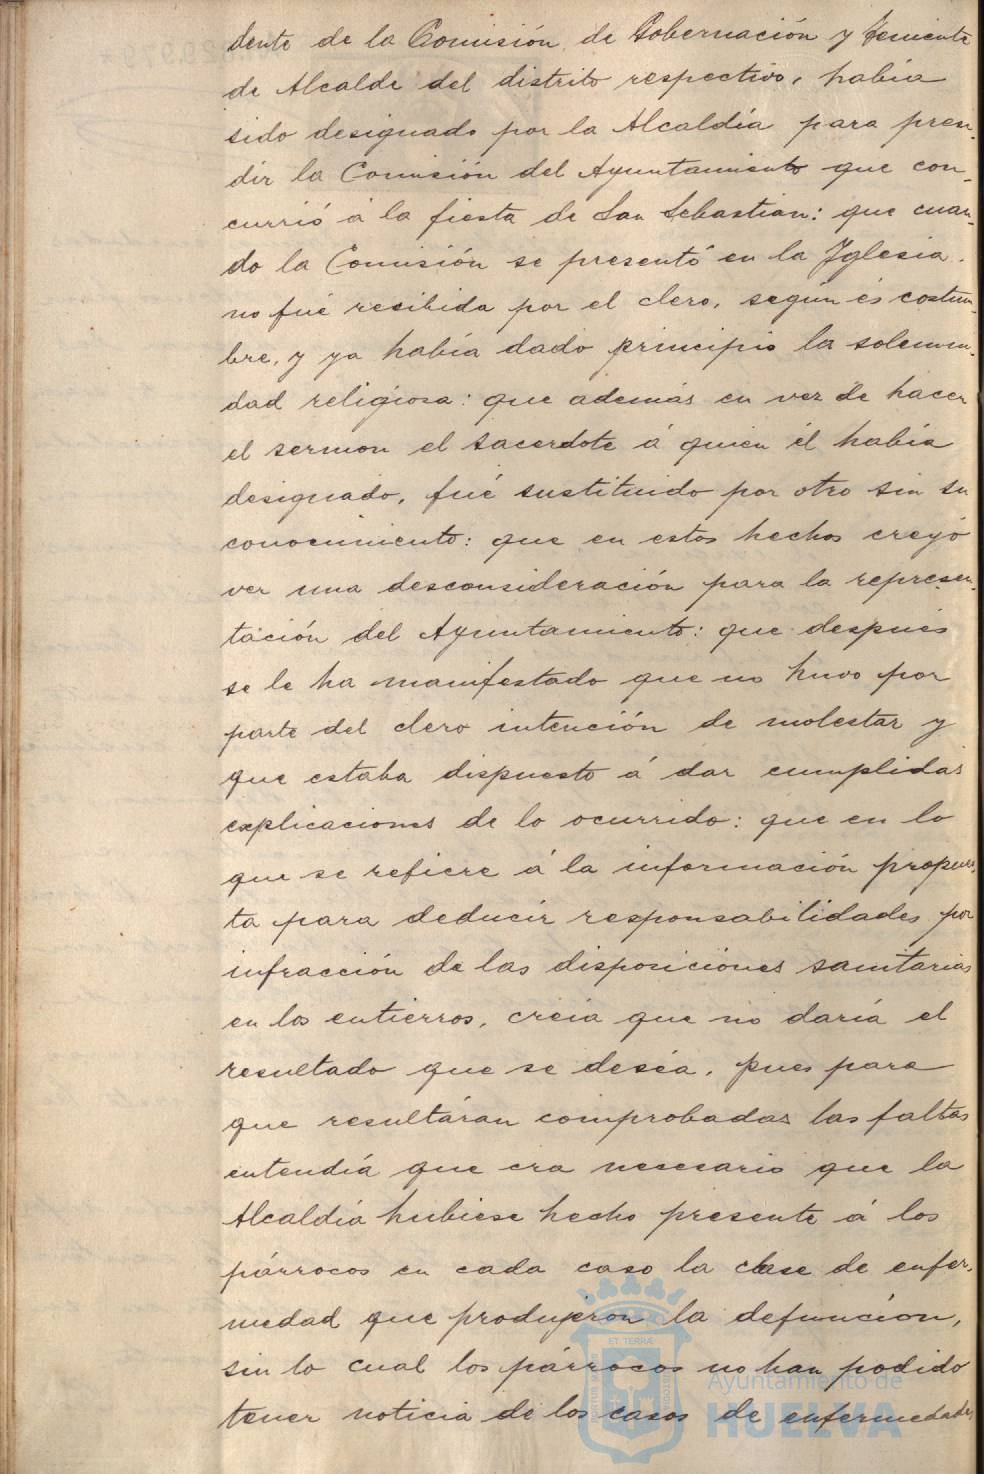 dente de la Comisión de Gobernación y Teniente
de Alcalde del distrito respectivo, había
sido designado por la Alcaldía para presi-
dir la Comisión del Ayuntamiento que con-
currió á la fiesta de San Sebastian: que cuan-
do la Comisión se presentó en la Yglesia
no fué recibida por el clero, según és costum-
bre, y ya había dado principio la solemni-
dad religiosa: que además en vez de hacer
el sermon el sacerdote á quien él había
designado, fué sustituido por otro sin su
conocimiento: que en estos hechos creyó
ver una desconsideración para la represen-
tación del Ayuntamiento: que después
se le ha manifestado que no huvo por
parte del clero intención de molestar y
que estaba dispuesto á dar cumplidas
explicaciones de lo ocurrido: que en lo
que se refiere á la información propues-
ta para deducir responsabilidades por
infracción de las disposiciones sanitarias
en los entierros, creia que no daría el
resultado que se deséa, pues para
que resultáran comprobadas las faltas
entendía que era nesesario que la
Alcaldía hubiese hecho presente á los
párrocos en cada caso la clase de enfer-
medad que produjeron la defunción,
sin lo cual los párrocos no han podido
tener noticia de los casos de enfermedades
ET TERRÆ
Ayuntamiento de
HUELVA